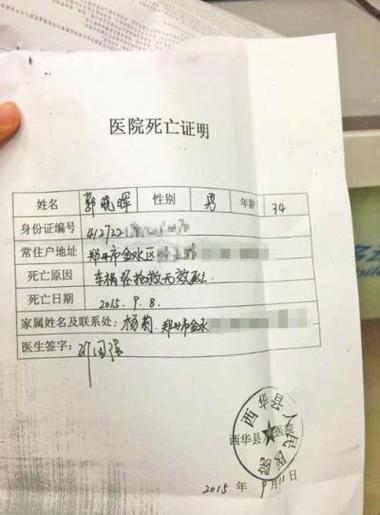 医院死亡证明
姓名 郭晓晖 性别 男 年龄 34
身份证编号 412722
常住户地址 郑州市金水区
死亡原因 车祸经抢救无效死亡
死亡日期 2015.9.8.
家属姓名及联系处: 杨菊 郑州市金水
医生签字:
西华县人民医院
西华县人民医院
2015年9月11日